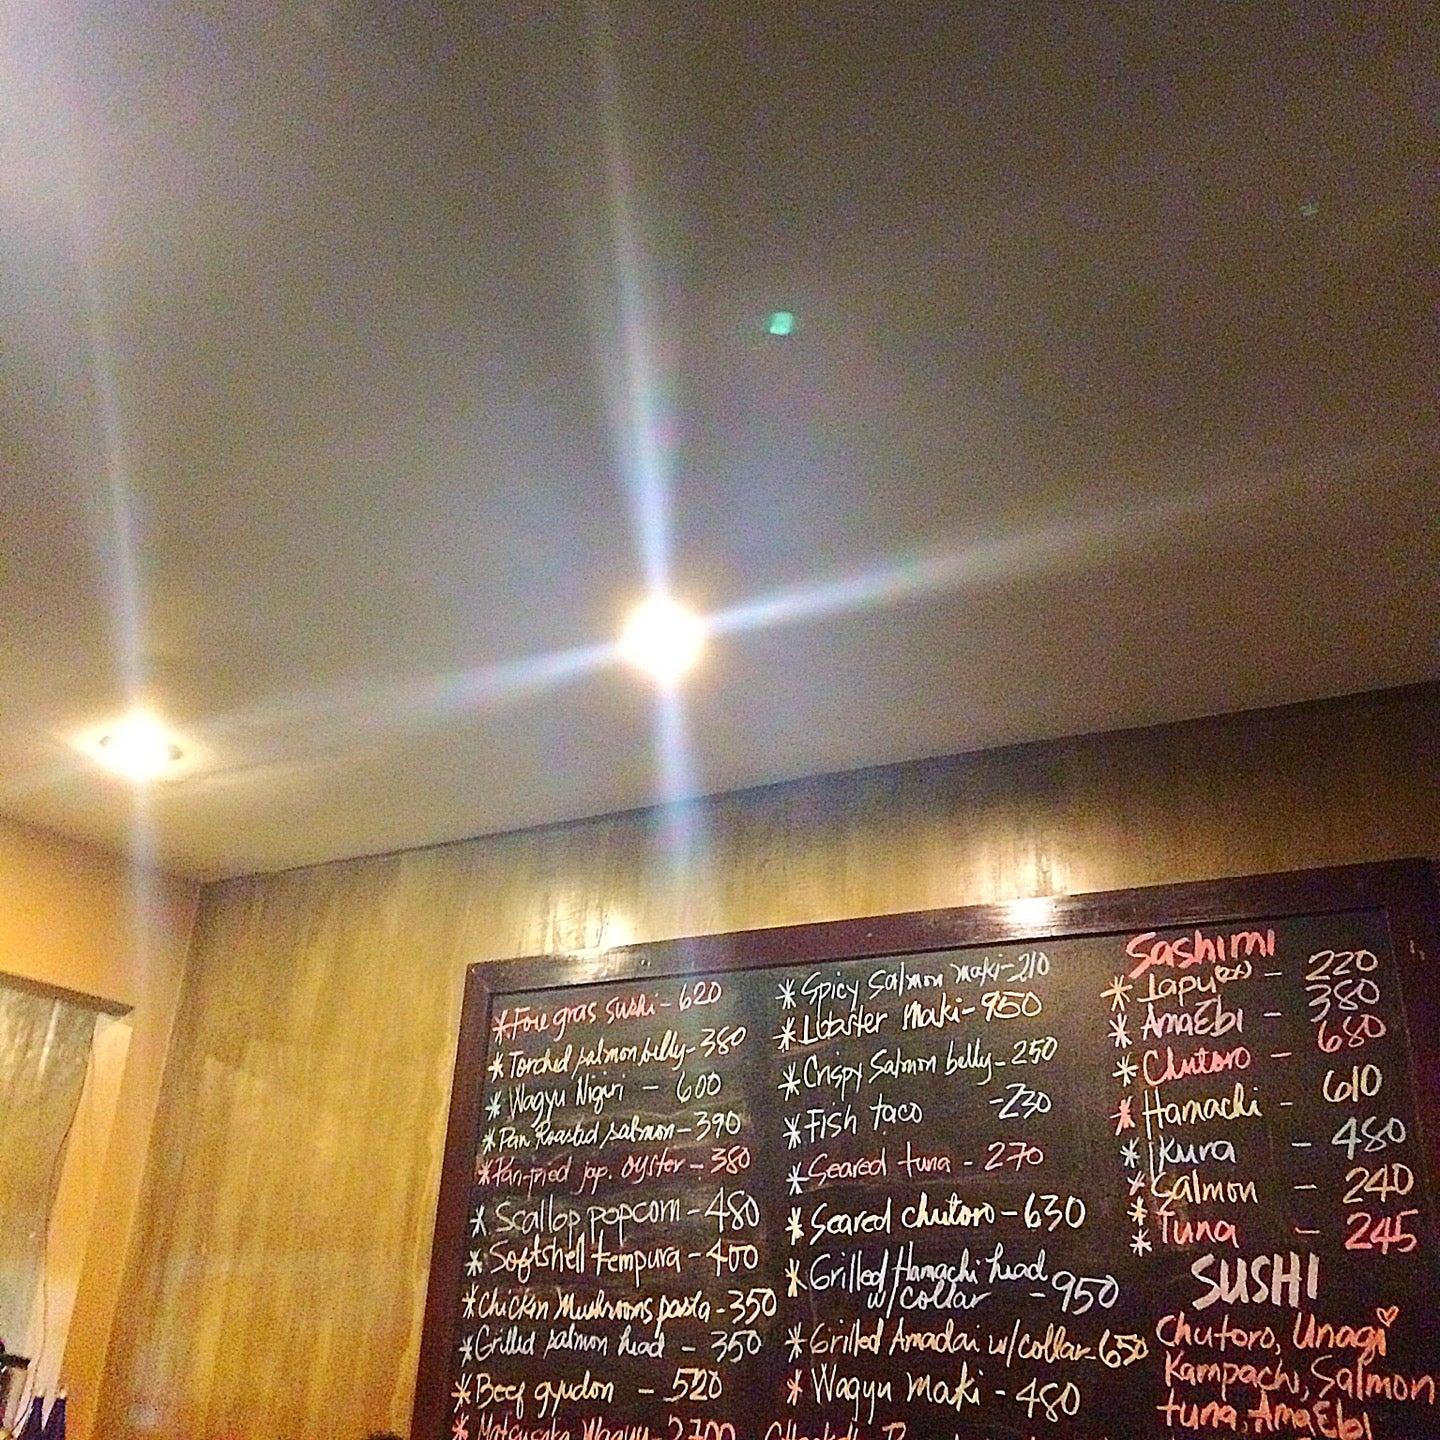 *Foie gras sushi - 620
*Torched salmon belly - 380
*Wagyu Nigiri - 600
*Pan Roasted salmon - 390
*Pan-fried jap. oyster - 380
*Scallop popcorn - 480
*Softshell tempura - 400
*Chicken Mushrooms pasta - 350
*Grilled salmon head - 350
*Beef gyudon - 520
*Matsusaka Wagyu - 2700
*Spicy Salmon maki - 210
*Lobster Maki - 950
*Crispy Salmon belly - 250
*Fish taco - 230
*Seared tuna - 270
*Seared chutoro - 630
*Grilled Hamachi head
w/collar - 950
*Grilled Amadai w/collar - 650
*Wagyu Maki - 480
Sashimi
*Lapu - 220
*AmaEbi - 380
*Chutoro - 680
*Hamachi - 610
*Ikura - 480
*Salmon - 240
*Tuna - 245
*
SUSHI
Chutoro, Unagi
Kampachi, Salmon
tuna, AmaEbi